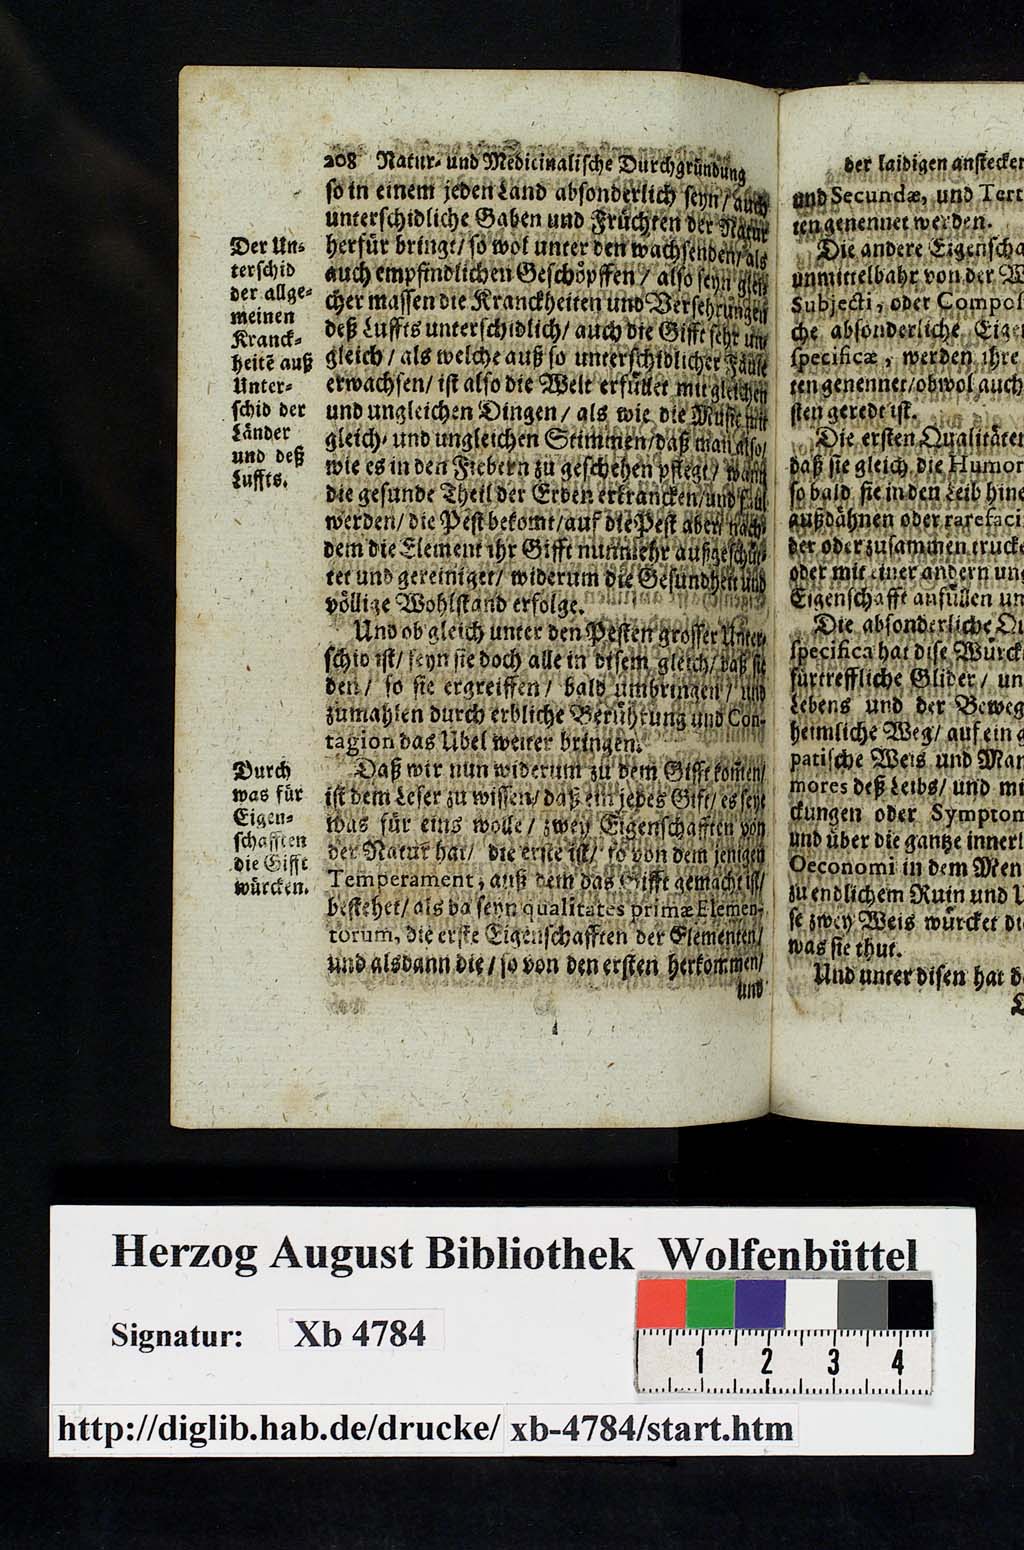 208 Natur- und Medicinalische Durchgründung
so in einem jeden Land absonderlich seyn/ auch
unterschidliche Gaben und Früchten der Natur
herfür bringt/ so wol unter den wachsenden/ als
auch empfindlichen Geschöpffen/ also seyn glei-
cher massen die Kranckheiten und Versehrungen
deß Luffts unterschidlich/ auch die Gifft sehr un-
gleich/ als welche auß so unterschidlicher Fäule
erwachsen/ ist also die Welt erfüllet mit gleichen
und ungleichen Dingen/ als wie die Music mit
gleich- und ungleichen Stimmen/ daß man also/
wie es in den Fiebern zu geschehen pflegt/ wann
die gesunde Theil der Erden erkrancken/ und faul
werden/ die Pest bekomt/ auf die Pest aber/ nach-
dem die Element ihr Gifft nunmehr außgeschüt-
tet und gereiniget/ widerum die Gesundheit und
völlige Wohlstand erfolge.
Und ob gleich unter den Pesten grosser Unter-
schid ist/ seyn sie doch alle in disem gleich/ daß sie
den/ so sie ergreiffen/ bald umbringen/ und
zumahlen durch erbliche Berührung und Con-
tagion das Ubel weiter bringen.
Daß wir nun widerum zu dem Gifft kom̃en/
ist dem Leser zu wissen/ daß ein jedes Gift/ es seye
was für eins wolle/ zwey Eigenschafften von
der Natur hat/ die erste ist/ so von dem jenigen
Temperament, auß dem das Gifft gemacht ist/
bestehet/ als da seyn qualitates primæ Elemen-
torum, die erste Eigenschafften der Elementen/
und alsdann die/ so von den ersten herkommen/
und
Der Un-
terschid
der allge-
meinen
Kranck-
heitẽ auß
Unter-
schid der
Länder
und deß
Luffts.
Durch
was für
Eigen-
schafften
die Gifft
würcken.
der laidigen anstecken
und Secundæ, und Tert
ten genennet werden.
Die andere Eigenscha
unmittelbahr von der W
Subjecti, oder Compos
che absonderliche Eigen
specificæ, werden ihre
ten genennet/ obwol auch
sten geredt ist.
Die ersten Qualitäten
daß sie gleich die Humor
so bald sie in den Leib hine
außdähnen oder rarefaci
der oder zusammen trucke
oder mit einer andern ung
Eigenschafft anfüllen un
Die absonderliche Qu
specifica hat dise Würck
fürtreffliche Glider/ un
Lebens und der Beweg
heimliche Weg/ auf ein
patische Weis und Man
mores deß Leibs/ und mi
ckungen oder Symptom
und über die gantze innerl
Oeconomi in dem Men
zu endlichem Ruin und U
se zwey Weis würcket di
was sie thut.
Und unter disen hat d
Herzog August Bibliothek Wolfenbüttel
Signatur: Xb 4784
1 2 3 4
http://diglib.hab.de/drucke/ xb-4784/start.htm